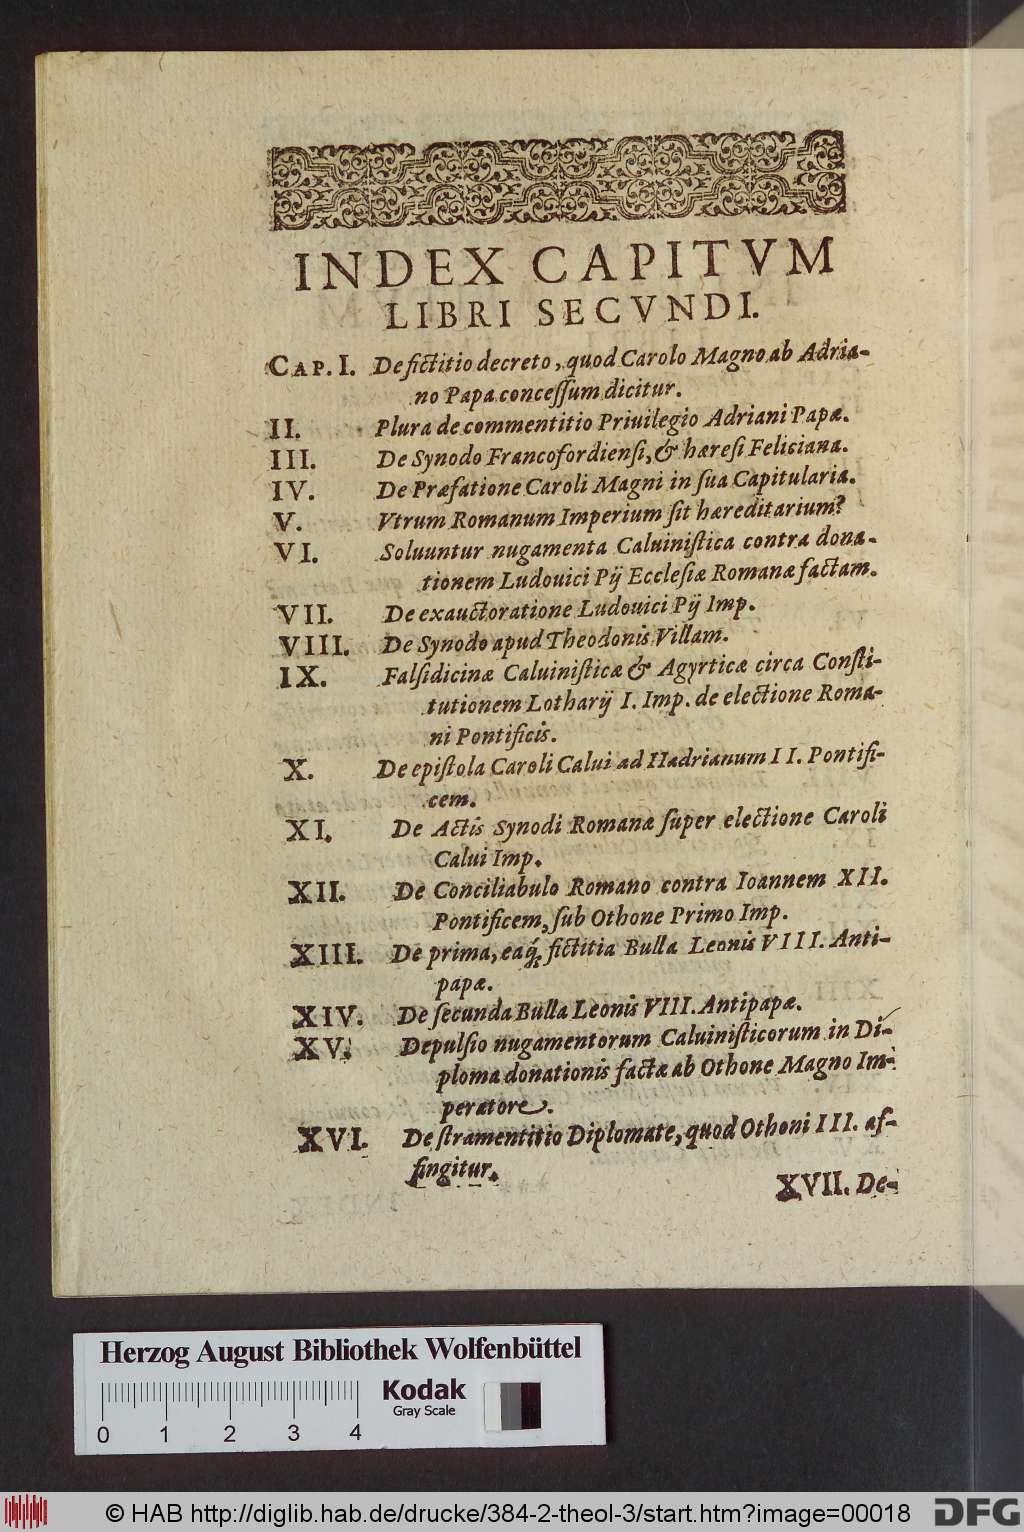 INDEX CAPITVM
LIBRI SECVNDI.
CAP. I. De fictitio decreto, quod Carolo Magno ab Adria-
no Papa concessum dicitur.
II. Plura de commentitio Priuilegio Adriani Papæ.
III. De Synodo Francofordiensi, & hæresi Feliciana.
IV. De Præfatione Caroli Magni in sua Capitularia.
V. Vtrum Romanum Imperium sit hæreditarium?
VI. Soluuntur nugamenta Caluinistica contra dona-
tionem Ludouici Pij Ecclesiæ Romanæ factam.
VII. De exauctoratione Ludouici Pij Imp.
VIII. De Synodo apud Theodonis Villam.
IX. Falsidicinæ Caluinisticæ & Agyrticæ circa Consti-
tutionem Lotharij I. Imp. de electione Roma-
ni Pontificis.
X. De epistola Caroli Calui ad Hadrianum II. Pontifi-
cem.
XI. De Actis Synodi Romanæ super electione Caroli
Calui Imp.
XII. De Conciliabulo Romano contra Ioannem XII.
Pontificem, sub Othone Primo Imp.
XIII. De prima, eaq́; fictitia Bulla Leonis VIII. Anti-
papæ.
XIV. De secunda Bulla Leonis VIII. Antipapæ.
XV. Depulsio nugamentorum Caluinisticorum in Di-
ploma donationis factæ ab Othone Magno Im-
peratore.
XVI. De stramentitio Diplomate, quod Othoni III. af-
fingitur.
XVII. De-
Herzog August Bibliothek Wolfenbüttel
Kodak
Gray Scale
0 1 2 3 4
© HAB http://diglib.hab.de/drucke/384-2-theol-3/start.htm?image=00018
DFG